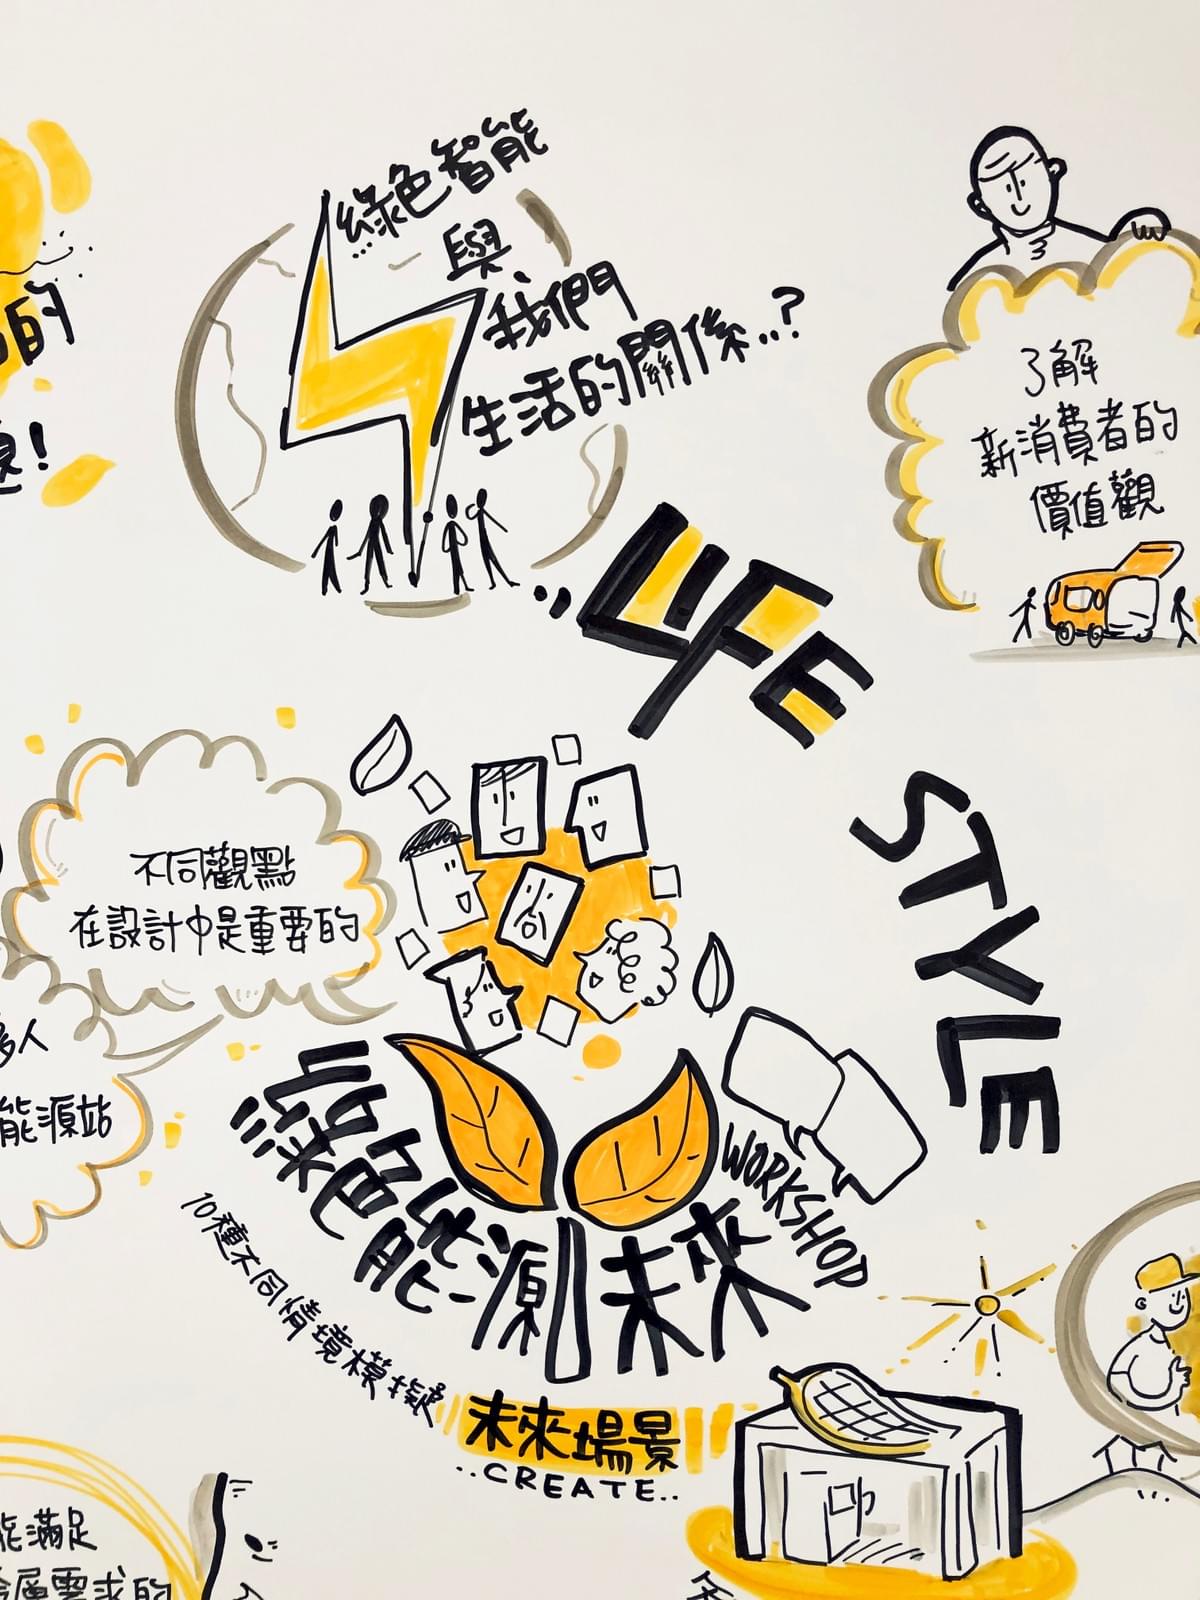 綠色智能
與
我們
生活的關係..?
的
!
了解
新消費者的
價值觀
LIFE
STYLE
不同觀點
在設計中是重要的
多人
能源站
綠色能源未來
WORKSHOP
10種不同情境模擬
未來場景
..CREATE..
能滿足
需求的